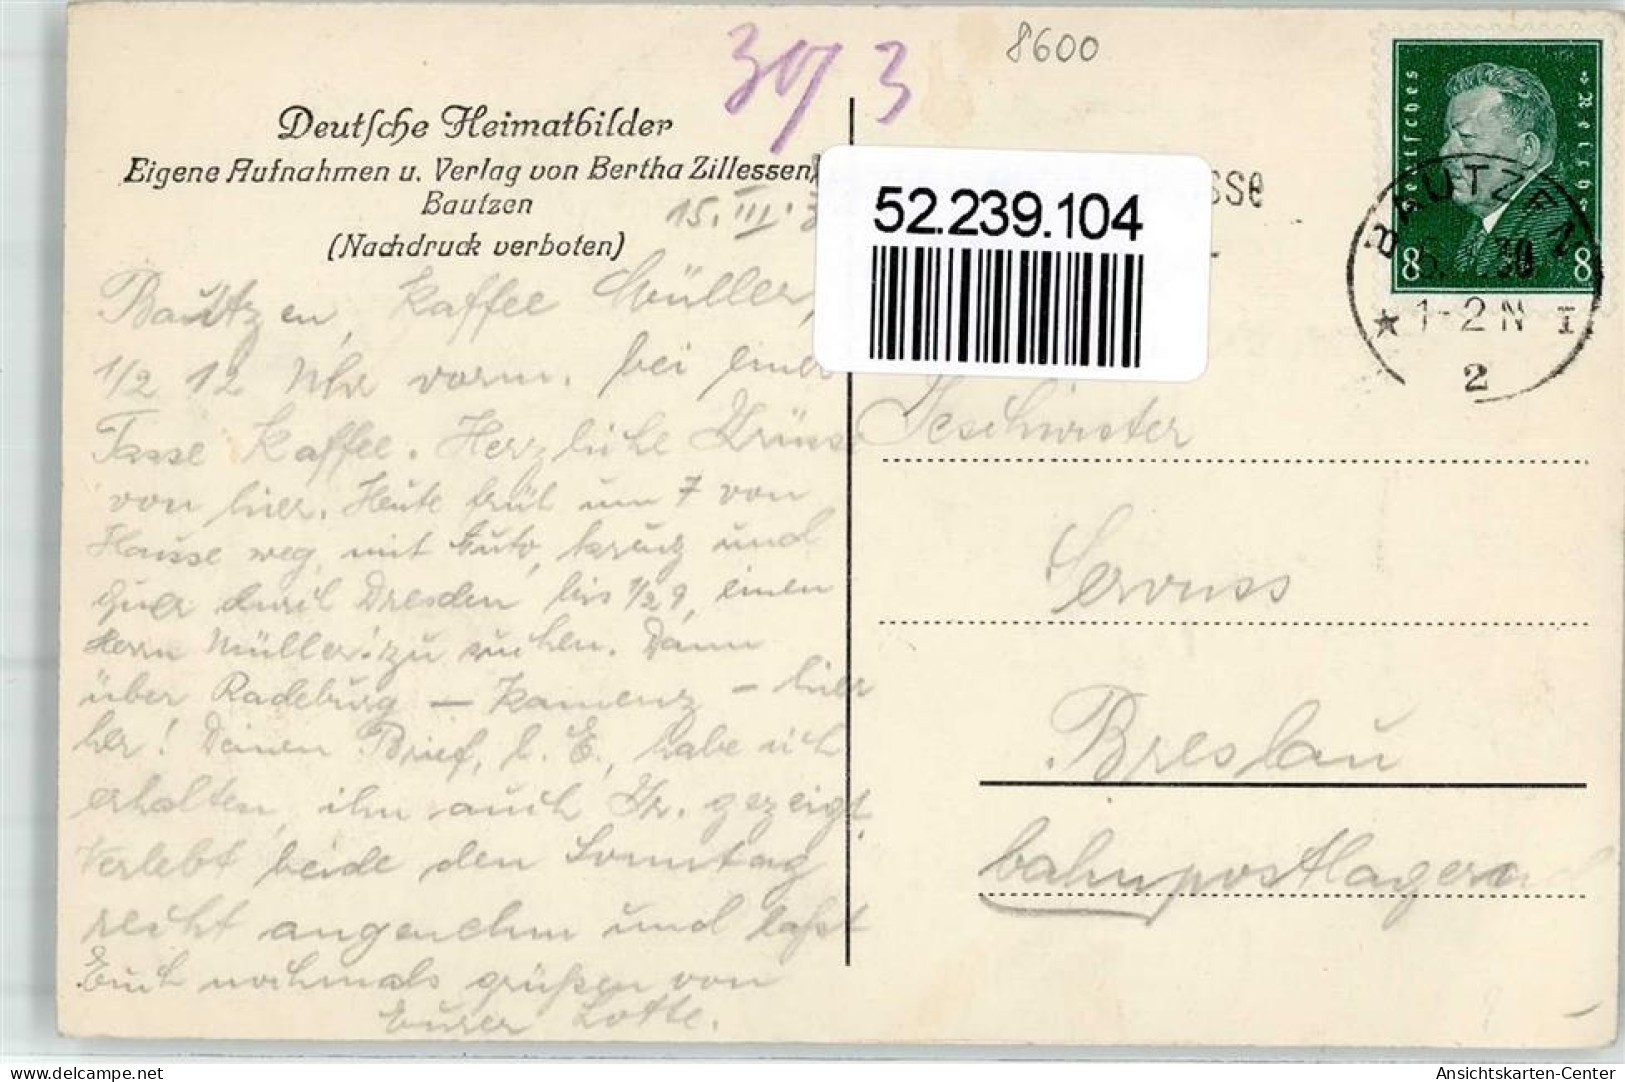 8600
3
Deutsche Heimatbilder
Eigene Aufnahmen u. Verlag von Bertha Zillessen,
Bautzen
(Nachdruck verboten)
15. III. 3
52.239.104
sse
Deutsches Reich
8 8
BAUTZEN
30
1-2 N I
2
Bautzen, Kaffee Müller,
1/2 12 Uhr vorm. bei einer
Tasse Kaffee. Herzliche Grüsse
von hier. Heute früh um 7 von
Hausse weg, mit Auto, kreuz und
quer durch Dresden bis 1/2 9, einen
Herrn Müller zu suchen. Dann
über Radeburg – Kamenz – hier
her! Deinen Brief, l. E., habe ich
erhalten, ihn auch gezeigt.
Verlebt beide den Sonntag
recht angenehm und lasst
Euch nochmals grüßen von
Eurer Lotte.
Geschwister
Servuss
Breslau
bahnpostlagernd
www.ansichtskarten-center.de
Ansichtskarten-Center